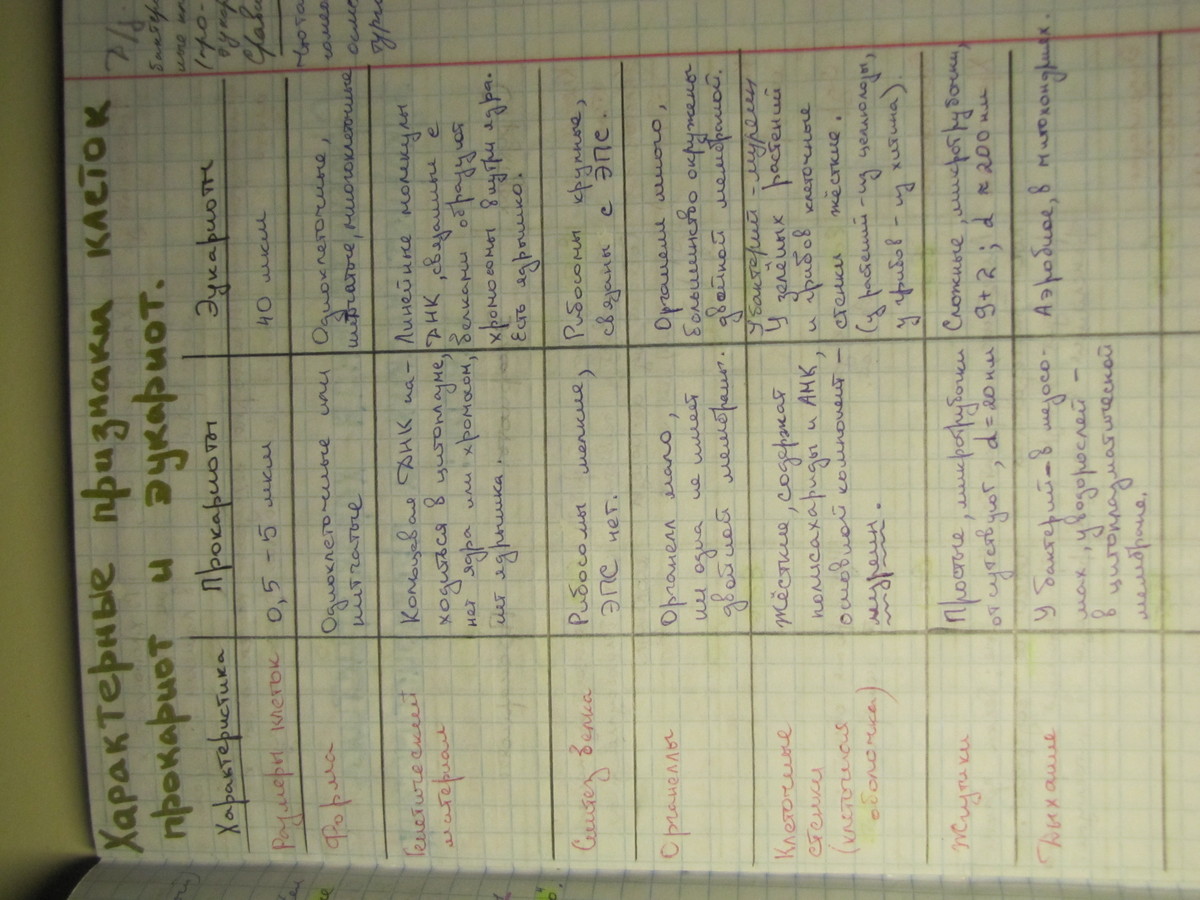 Характерные признаки клеток
прокариот и эукариот.
Характеристика Прокариоты Эукариоты
Размеры клеток 0,5 - 5 мкм 40 мкм
Форма
Одноклеточные или
нитчатые
Одноклеточные,
нитчатые, многоклеточные
Генетический
материал
Кольцевая ДНК на-
ходиться в цитоплазме,
нет ядра или хромосом,
нет ядрышка.
Линейные молекулы
ДНК, связанные с
белками образуют
хромосомы внутри ядра.
Есть ядрышко.
Синтез белка
Рибосомы мелкие,
ЭПС нет.
Рибосомы крупные,
связаны с ЭПС.
Органеллы
Органелл мало,
ни одна не имеет
двойной мембраны.
Органелл много,
большинство окружены
двойной мембраной.
Клеточные
стенки
(клеточная
оболочка)
Жёсткие, содержат
полисахариды и АМК,
основной компонент -
муреин.
У бактерий - муреин
У зелёных растений
и грибов клеточные
стенки жёсткие.
(у растений - из целлюлозы,
у грибов - из хитина).
Жгутики
Простые, микротрубочки
отсутствуют, d = 20 нм
Сложные, микротрубочки,
9 + 2 ; d ≈ 200 нм
Дыхание
У бактерий - в мезосо-
мах, у водорослей -
в цитоплазматической
мембране.
Аэробное, в митохондриях.
Д/з